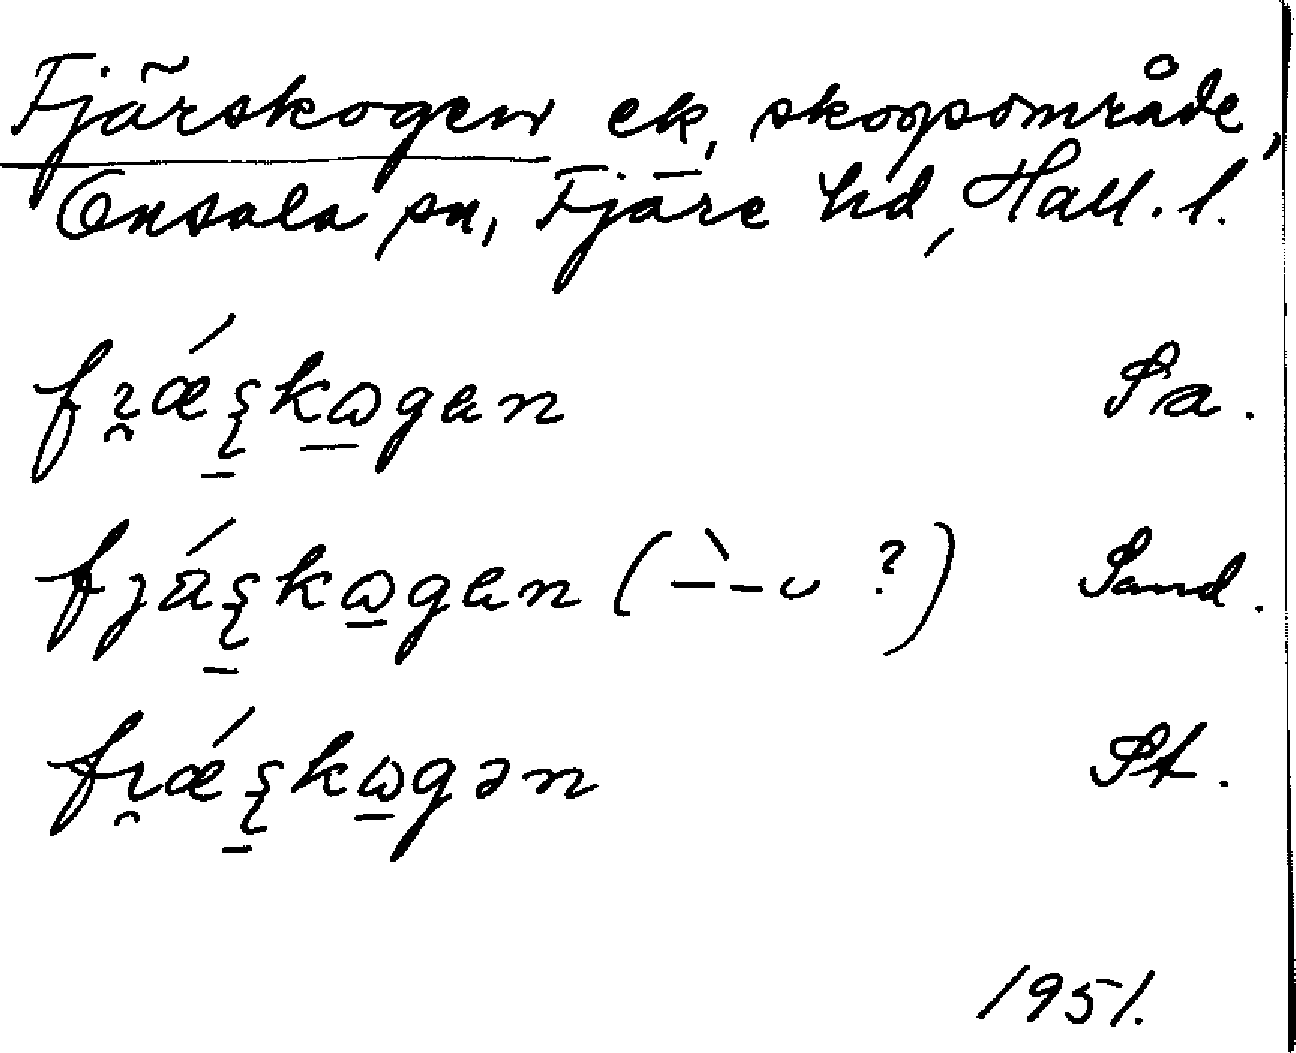 Fjärskogen ek, skogsområde,
Onsala sn, Fjäre hd, Hall. l.
fı̯ǽʂkωgan Sa.
fjáʂkωgan (–̀ – ᴗ ?) Sand.
fı̯ǽʂkωgən St.
1951.